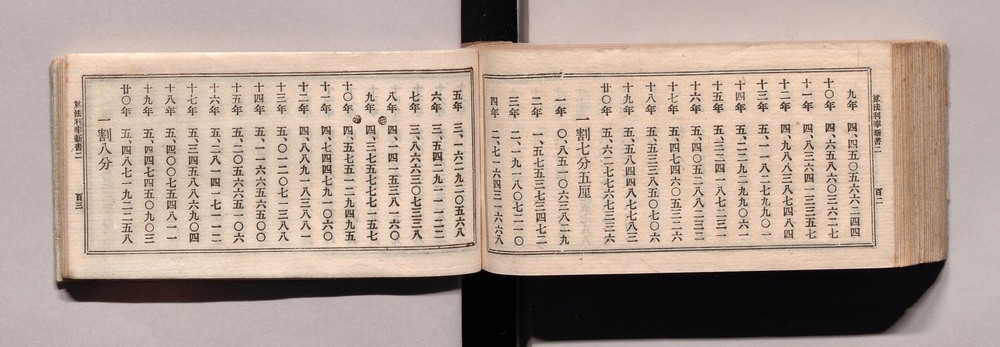 九年　四、四五〇五六六二四四
十年　四、六五八六〇三六二七
十一年　四、八三六四一三三五七
十二年　四、九八八三八七四八四
十三年　五、一一八二七九九〇一
十四年　五、二二九二九九〇六一
十五年　五、三二四一八七二三一
十六年　五、四〇五二八八二三二
十七年　五、四七四六〇五三二六
十八年　五、五三三八五〇七〇六
十九年　五、五八四四八七七八三
廿〇年　五、六二七七六七三三六
一割七分五厘
一年　〇、八五一〇六三八二九
二年　一、五七五三七三四七二
三年　二、一九一八〇七二一〇
四年　二、七一六四三一六六八
算法利率新書二　百二
五年　三、一六二九二〇五六八
六年　三、五四二九一一一二二
七年　三、八六六三〇七三三八
八年　四、一四一五三八一六〇
九年　四、三七五七七七一五七
十〇年　四、五七五一二九四九五
十一年　四、七四四七九一〇六〇
十二年　四、八八九一八三八八一
十三年　五、〇一二〇七一三八八
十四年　五、一一六六五六五〇〇
十五年　五、二〇五六六五一〇六
十六年　五、二八一四一七一一二
十七年　五、三四五八八六九〇四
十八年　五、四〇〇七五四八一一
十九年　五、四四七四五〇九〇三
廿〇年　五、四八七一九二二五八
一割八分
算法利率新書二　百三